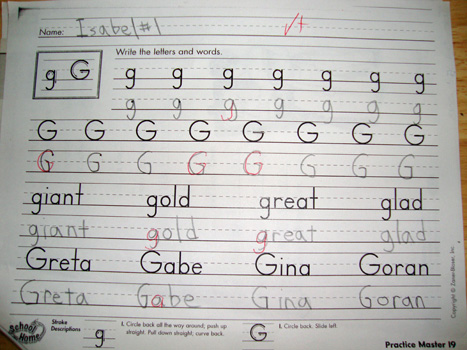 Name: Isabel #1 √+
Write the letters and words.
g G g g g g g g g
g g g g g g g
G G G G G G G G
G G G G G G G G
giant gold great glad
giant gold great glad
Greta Gabe Gina Goran
Greta Gabe Gina Goran
School Home
Stroke Descriptions
g
1. Circle back all the way around; push up straight. Pull down straight; curve back.
G
1. Circle back. Slide left.
Practice Master 19
Copyright © Zaner-Bloser, Inc.